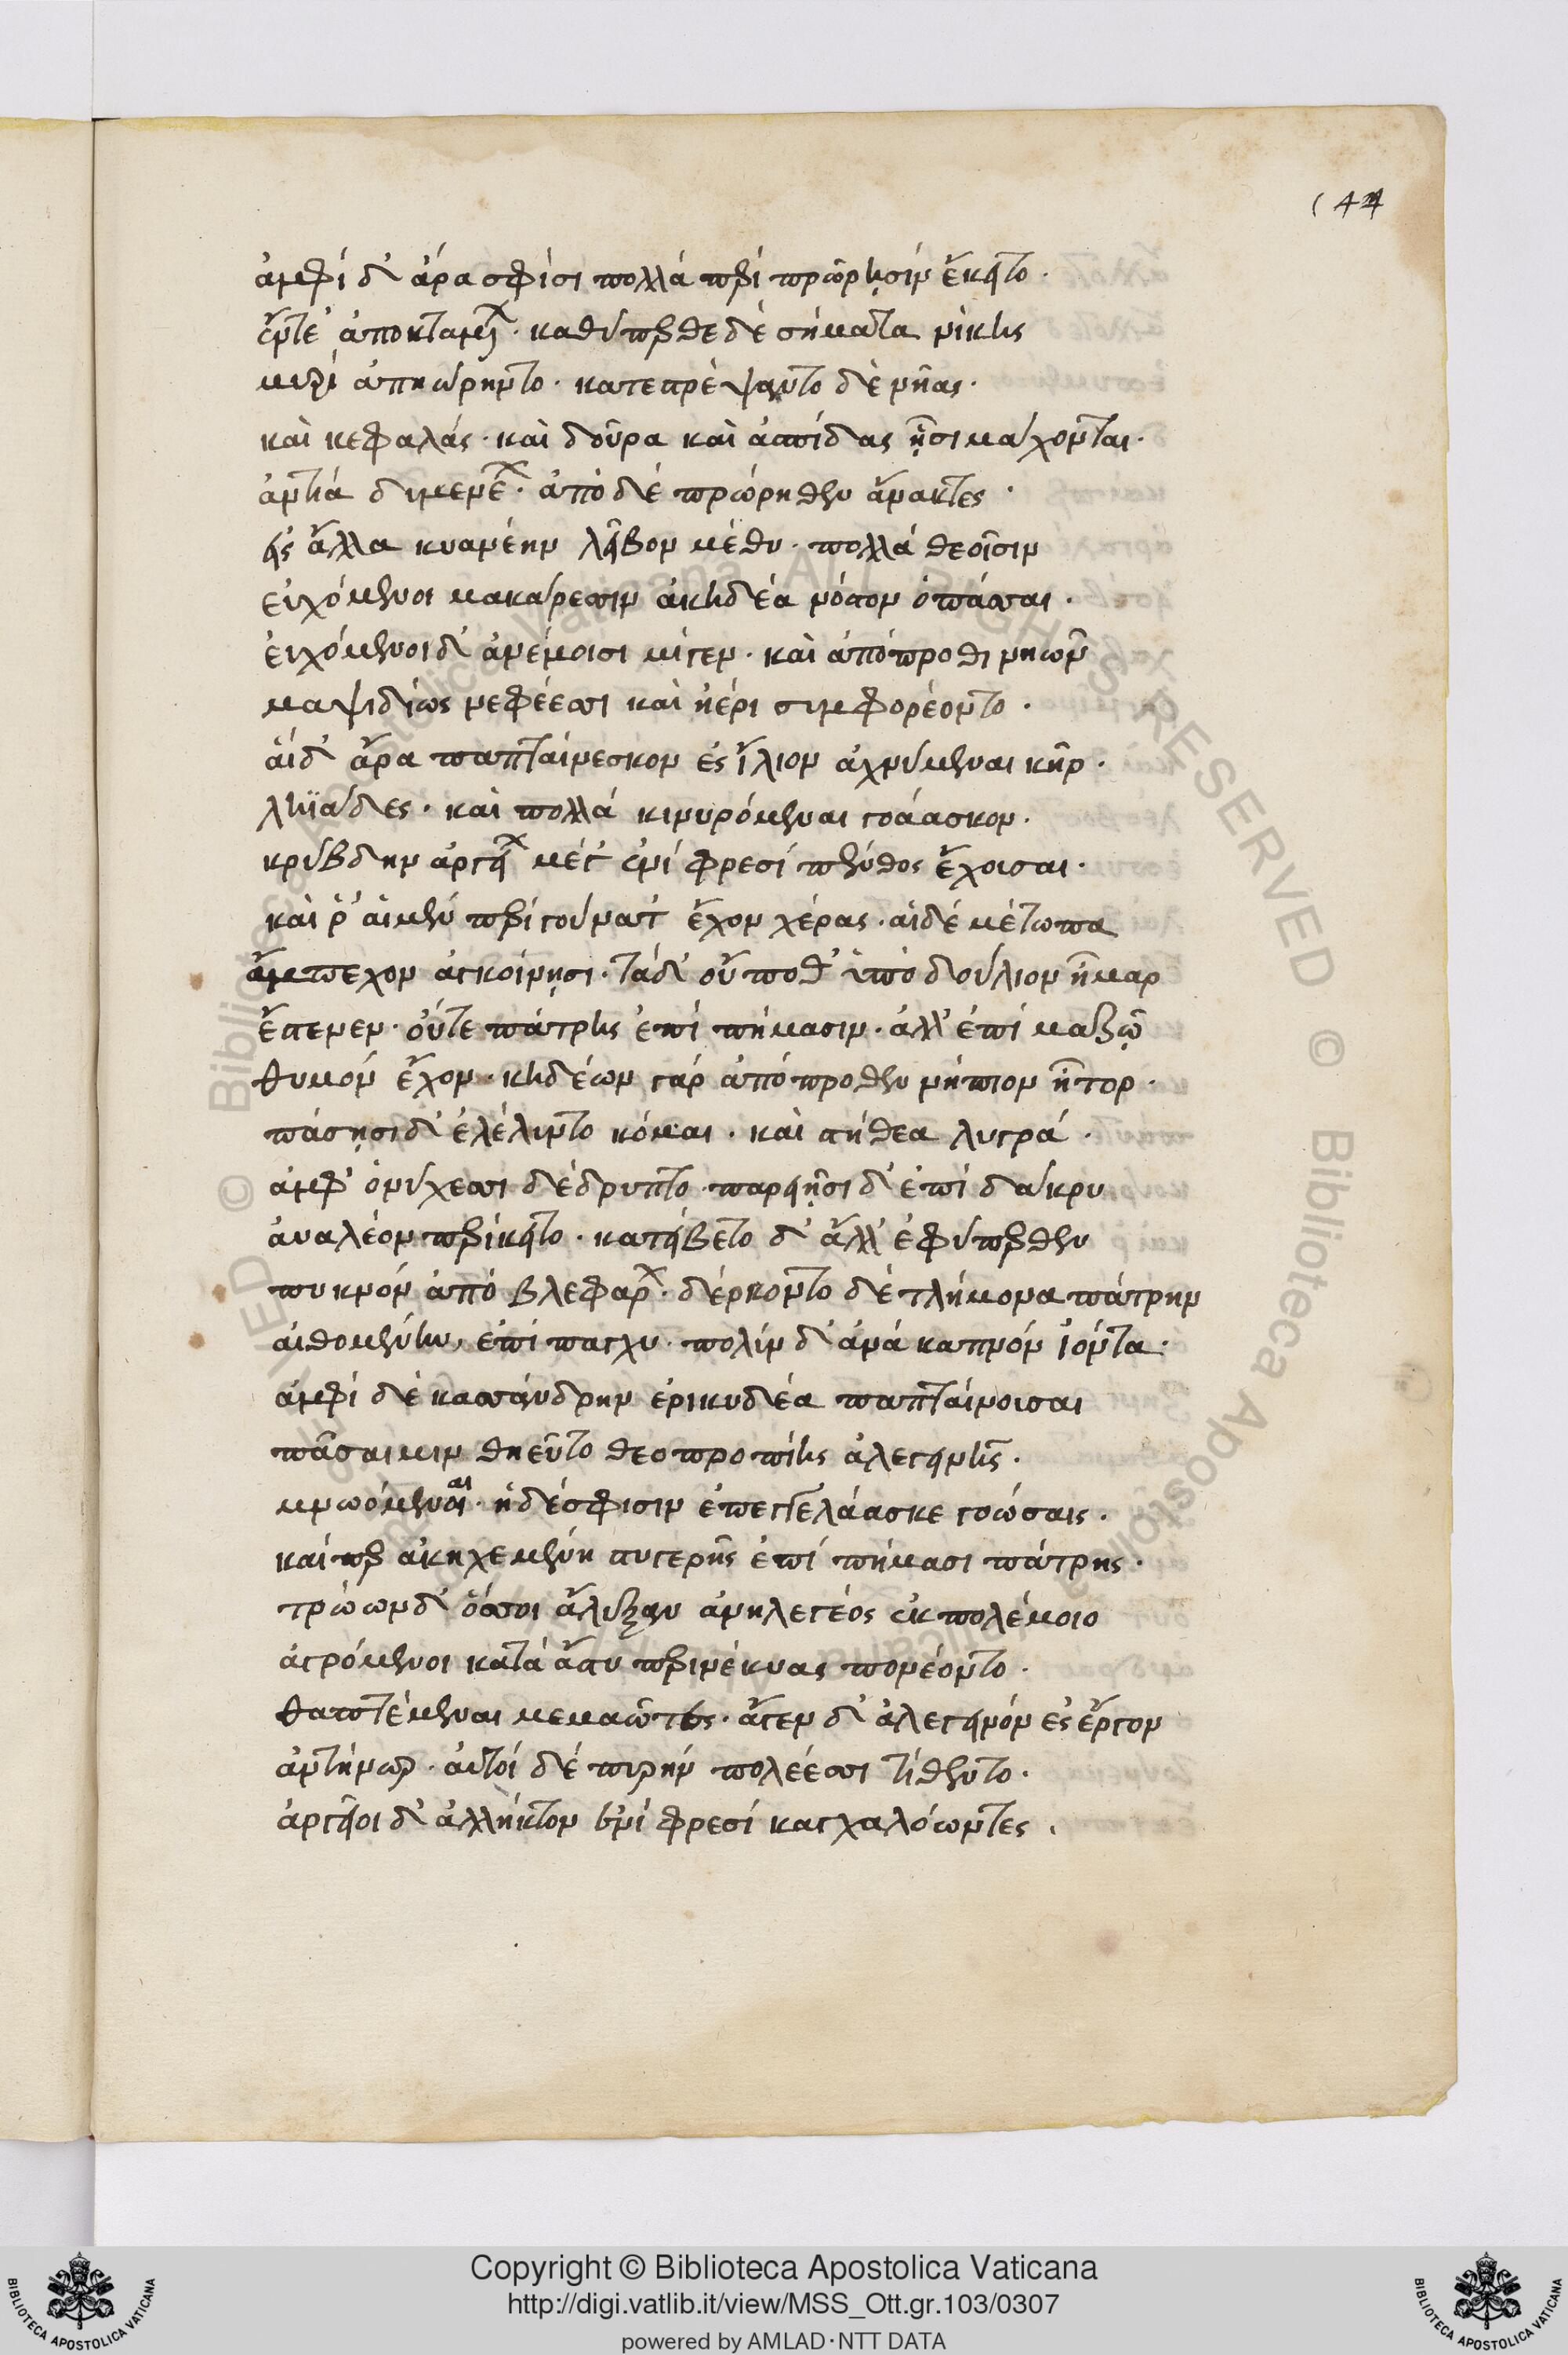 ἀμφὶ δ' ἄρα σφίσι πολλὰ περὶ πρώρησιν ἔκειτο·
ἔντε' ἀποκταμένων· καθύπερθε δὲ σήματα νίκης
μυρί' ἀπηώρηντο· κατεπρέψαντο δὲ νῆας·
καὶ κεφαλάς· καὶ δοῦρα καὶ ἀσπίδας ᾗσι μάχονται·
ἀντία δυμενέων· ἀπὸ δὲ πρώρηθεν ἄνακτες·
εἰς ἄλλα κυανέην λεῖβον μέθυ· πολλὰ θεοῖσιν
εὐχόμενοι μακάρεσσιν ἀκηδέα νόστον ὀπάσσαι·
εὐχόμενοι δ' ἀνέμοισι μίγεν· καὶ ἀπόπροθι νηῶν
μαψιδίως νεφέεσσι καὶ ἠέρι συμφορέοντο·
αἱ δ' ἄρα παπταίνεσκον ἐς ἴλιον ἀχνύμεναι κῆρ·
ληϊάδες· καὶ πολλὰ κινυρόμεναι γοάασκον·
κρύβδην ἀργείων μέγ' ἐνὶ φρεσὶ πένθος ἔχουσαι·
καὶ ῥ' αἱ μὲν περὶ γούνατ' ἔχον χέρας· αἱ δὲ μέτωπα
ἄμπεχον ἀγκοίνησι· τὰ δ' οὔ ποθ' ὑπὸ δούλιον ἦμαρ
ἔστενεν· οὔτε πάτρης ἐπὶ πήμασιν· ἀλλ' ἐπὶ μαζῷ
θυμὸν ἔχον· κηδέων γὰρ ἀπόπροθεν νήπιον ἦτορ·
πάσῃσι δ' ἐλέλυντο κόμαι· καὶ στήθεα λυγρά·
ἀμφ' ὀνύχεσσι δέδρυπτο· παρειῇσι δ' ἐπὶ δάκρυ
ἀυαλέον περίκειτο· κατείβετο δ' ἄλλ' ἐφύπερθεν
πυκνὸν ἀπὸ βλεφάρων· δέρκοντο δὲ τλήμονα πάτρην
αἰθομένην, ἐπὶ παγχυ· πολὺν δ' ἀνὰ καπνὸν ἰόντα·
ἀμφὶ δὲ κασσάνδρην ἐρικυδέα παπταίνουσαι
πᾶσαι μιν θηεῦντο θεοπροπίης ἀλεγεινῆς·
μνωόμεναι· ἡ δέ σφισιν ἐπεγγελάασκε γοώσαις·
καί περ ἀκηχεμένη στυγερῆς ἐπὶ πήμασι πάτρης·
τρώων δ' ὅσσοι ἄλυξαν ἀνηλεγέος ἐκ πολέμοιο
ἀγρόμενοι κατὰ ἄστυ περὶ νέκυας πονέοντο·
θαπτέμεναι μεμαῶτες· ἄγεν δ' ἀλεγεινὸν ἐς ἔργον
ἀντήνωρ· αὐτοὶ δὲ πυρὴν πολέεσσι τίθεντο·
ἀργεῖοι δ' ἀλλήκτον ἐνὶ φρεσὶ καγχαλόωντες.
(44
Copyright © Biblioteca Apostolica Vaticana
http://digi.vatlib.it/view/MSS_Ott.gr.103/0307
powered by AMLAD·NTT DATA
BIBLIOTECA APOSTOLICA VATICANA
BIBLIOTECA APOSTOLICA VATICANA